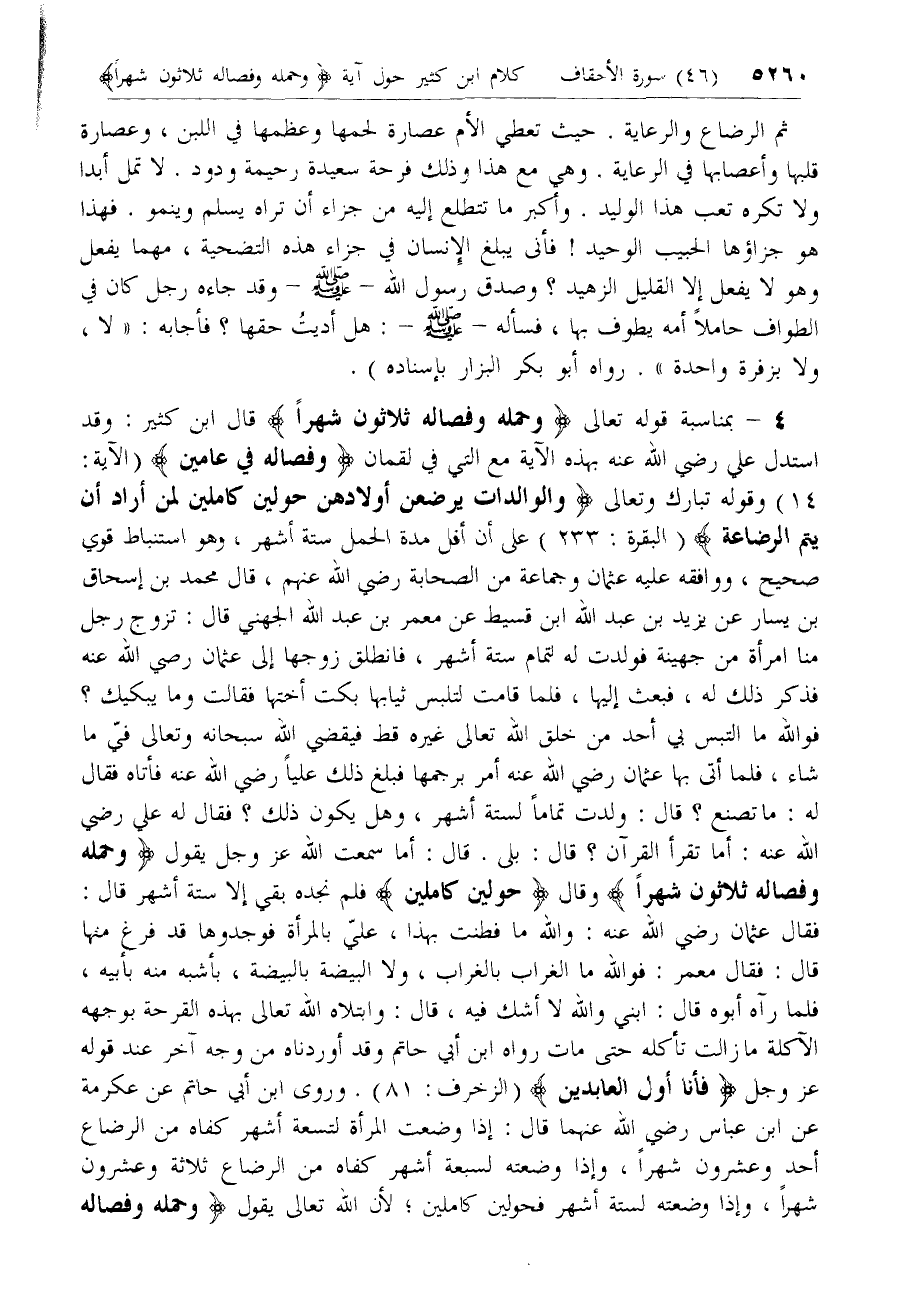 ٥٢٦٠ (٤٦) سورة الأحقاف كلام ابن كثير حول آية ﴿ وحمله وفصاله ثلاثون شهراً﴾
ثم الرضاع والرعاية . حيث تعطي الأم عصارة لحمها وعظمها في اللبن ، وعصارة
قلبها وأعصابها في الرعاية . وهي مع هذا وذلك فرحة سعيدة رحيمة ودود . لا تمل أبدا
ولا تكره تعب هذا الوليد . وأكبر ما تتطلع إليه من جزاء أن تراه يسلم وينمو . فهذا
هو جزاؤها الحبيب الوحيد ! فأنى يبلغ الإنسان في جزاء هذه التضحية ، مهما يفعل
وهو لا يفعل إلا القليل الزهيد ؟ وصدق رسول الله – ﷺ – وقد جاءه رجل كان في
الطواف حاملاً أمه يطوف بها ، فسأله – ﷺ – : هل أديتُ حقها ؟ فأجابه : « لا ،
ولا بزفرة واحدة » . رواه أبو بكر البزار بإسناده ) .
٤ – بمناسبة قوله تعالى ﴿ وحمله وفصاله ثلاثون شهراً ﴾ قال ابن كثير : وقد
استدل علي رضي الله عنه بهذه الآية مع التي في لقمان ﴿ وفصاله في عامين ﴾ (الآية :
١٤) وقوله تبارك وتعالى ﴿ والوالدات يرضعن أولادهن حولين كاملين لمن أراد أن
يتم الرضاعة ﴾ ( البقرة : ٢٣٣ ) على أن أقل مدة الحمل ستة أشهر ، وهو استنباط قوي
صحيح ، ووافقه عليه عثمان وجماعة من الصحابة رضي الله عنهم ، قال محمد بن إسحاق
بن يسار عن يزيد بن عبد الله ابن قسيط عن معمر بن عبد الله الجهني قال : تزوج رجل
منا امرأة من جهينة فولدت له لتمام ستة أشهر ، فانطلق زوجها إلى عثمان رصي الله عنه
فذكر ذلك له ، فبعث إليها ، فلما قامت لتلبس ثيابها بكت أختها فقالت وما يبكيك ؟
فوالله ما التبس بي أحد من خلق الله تعالى غيره قط فيقضي الله سبحانه وتعالى فيّ ما
شاء ، فلما أتى بها عثمان رضي الله عنه أمر برجمها فبلغ ذلك علياً رضي الله عنه فأتاه فقال
له : ماتصنع ؟ قال : ولدت تماماً لستة أشهر ، وهل يكون ذلك ؟ فقال له علي رضي
الله عنه : أما تقرأ القرآن ؟ قال : بلى . قال : أما سمعت الله عز وجل يقول ﴿ وحمله
وفصاله ثلاثون شهراً ﴾ وقال ﴿ حولين كاملين ﴾ فلم نجده بقي إلا ستة أشهر قال :
فقال عثمان رضي الله عنه : والله ما فطنت بهذا ، عليّ بالمرأة فوجدوها قد فرغ منها
قال : فقال معمر : فوالله ما الغراب بالغراب ، ولا البيضة بالبيضة ، بأشبه منه بأبيه ،
فلما رآه أبوه قال : ابني والله لا أشك فيه ، قال : وابتلاه الله تعالى بهذه القرحة بوجهه
الآكلة مازالت تأكله حتى مات رواه ابن أبي حاتم وقد أوردناه من وجه آخر عند قوله
عز وجل ﴿ فأنا أول العابدين ﴾ (الزخرف : ٨١) . وروى ابن أبي حاتم عن عكرمة
عن ابن عباس رضي الله عنهما قال : إذا وضعت المرأة لتسعة أشهر كفاه من الرضاع
أحد وعشرون شهراً ، وإذا وضعته لسبعة أشهر كفاه من الرضاع ثلاثة وعشرون
شهراً ، وإذا وضعته لستة أشهر فحولين كاملين ؛ لأن الله تعالى يقول ﴿ وحمله وفصاله